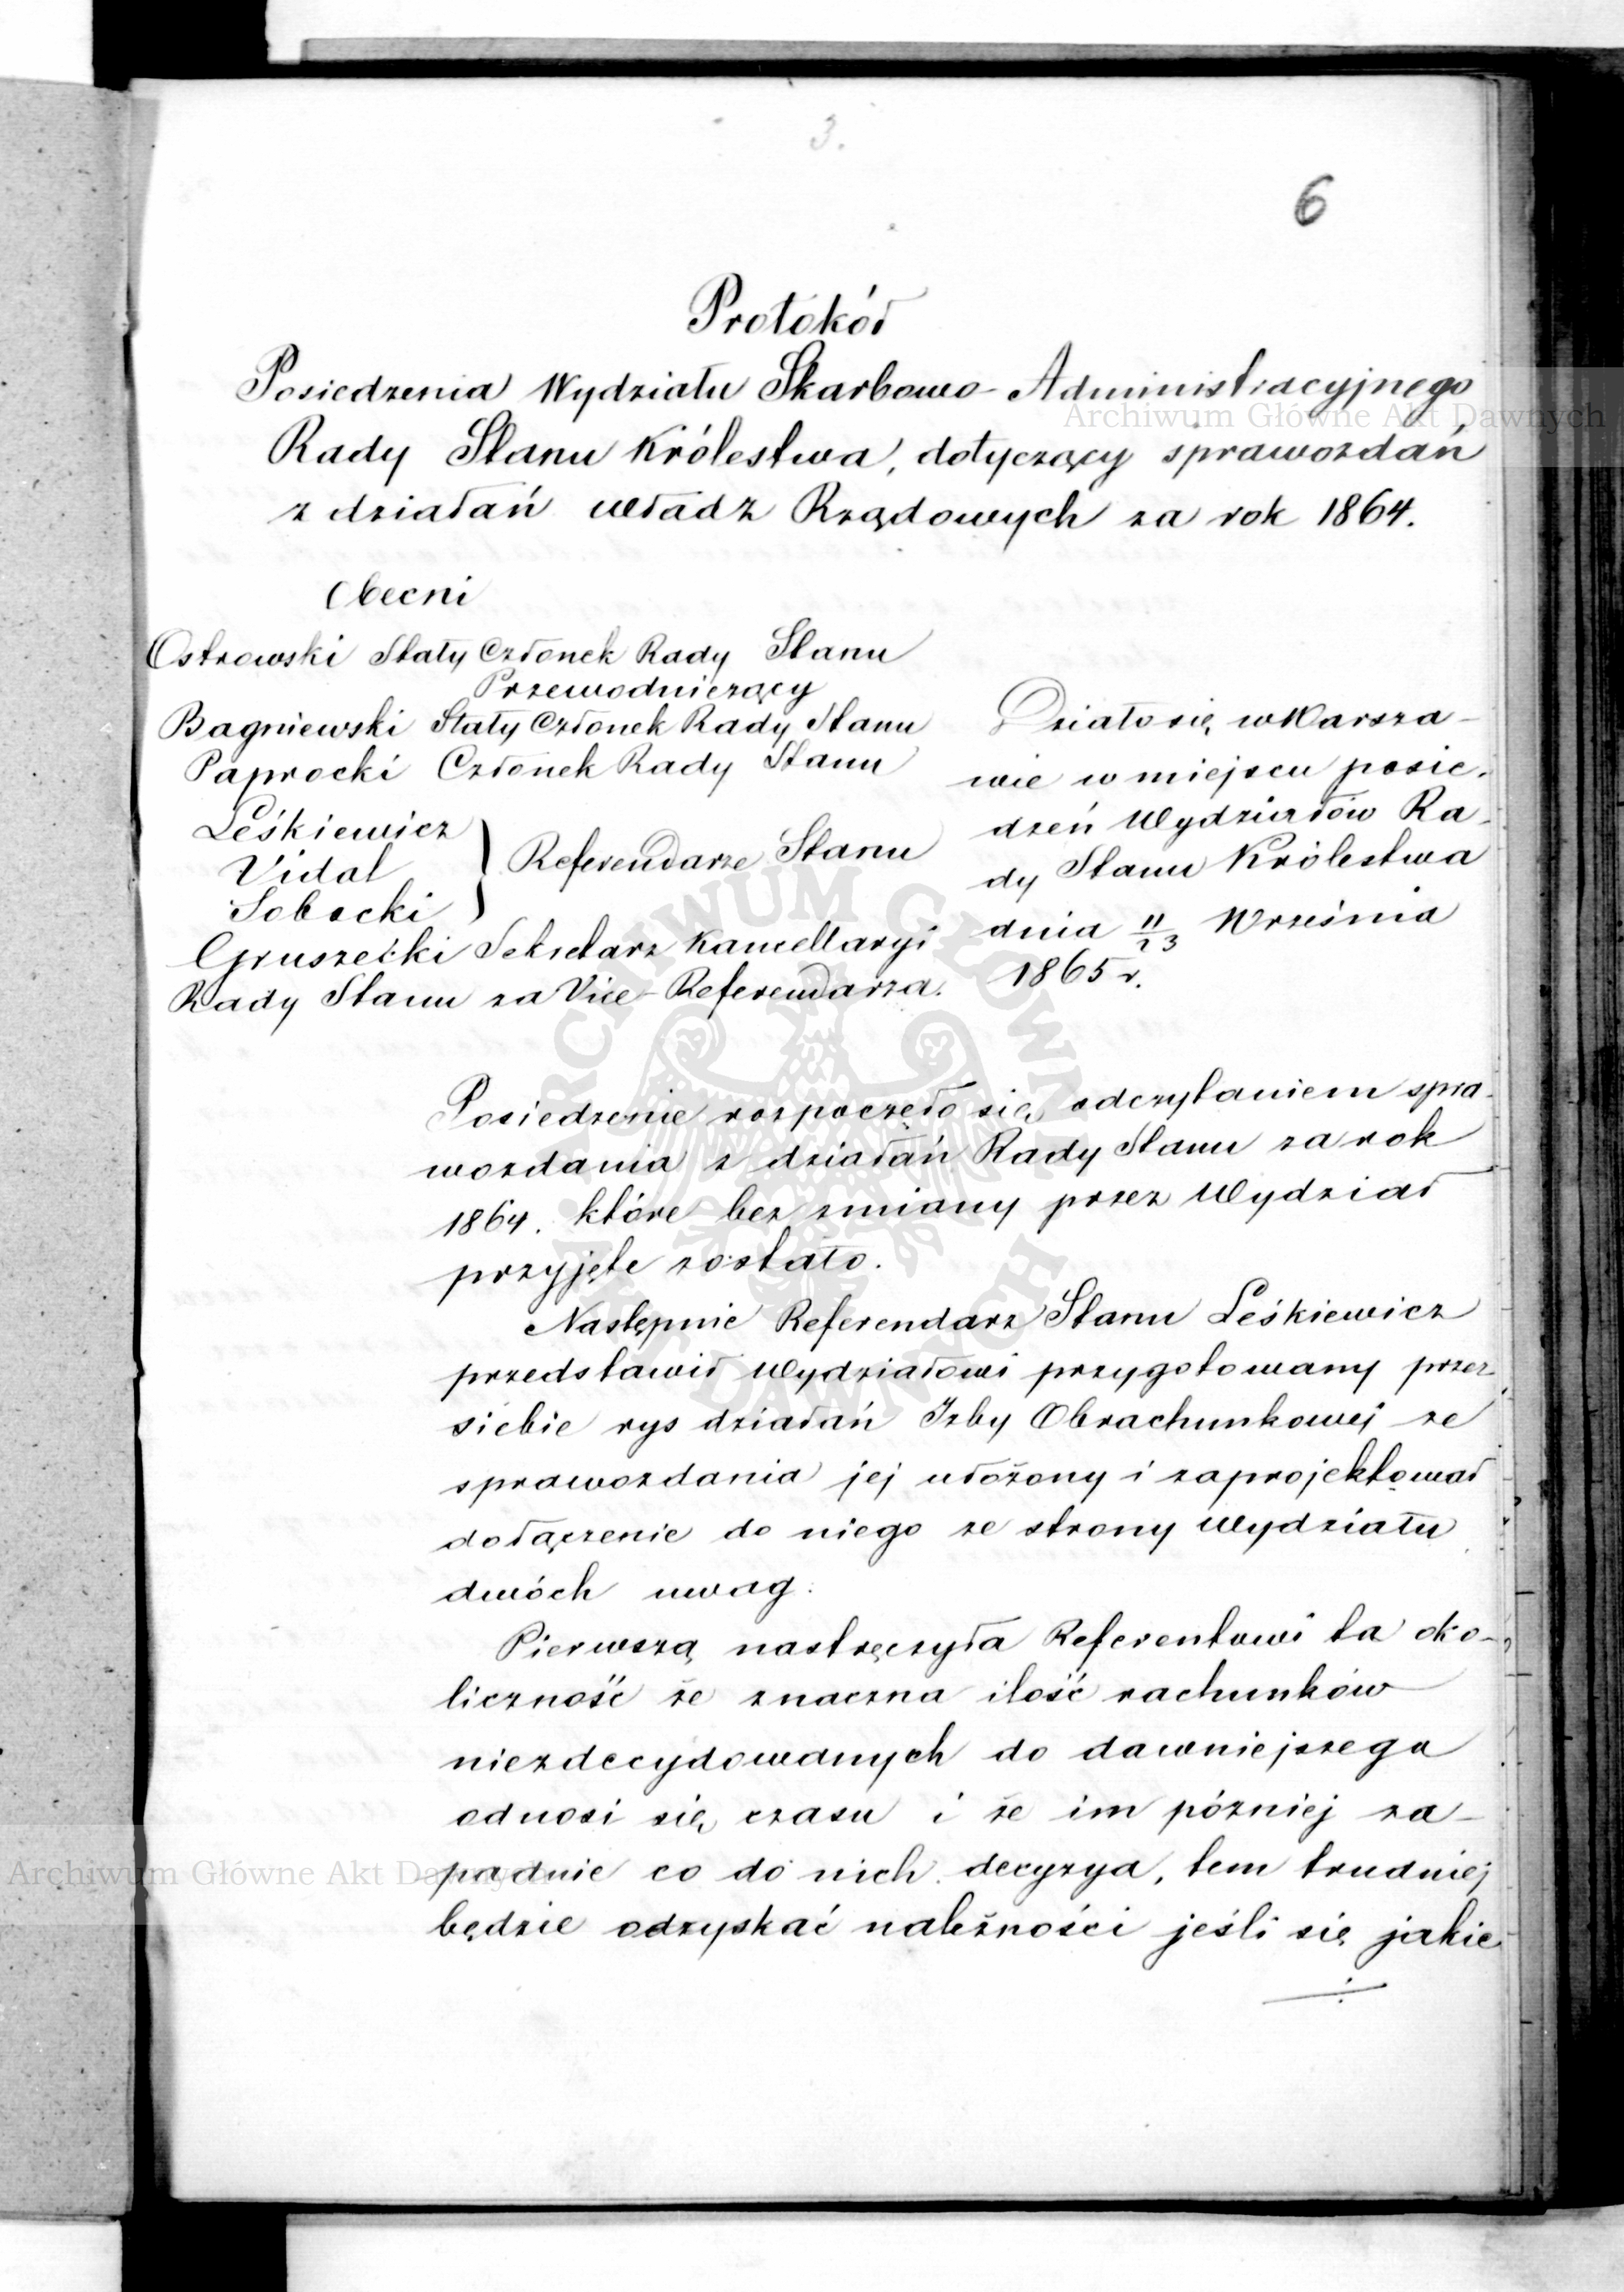 3.
6
Protokół
Posiedzenia Wydziału Skarbowo-Administracyjnego
Rady Stanu Królestwa, dotyczący sprawozdań
z działań władz Rządowych za rok 1864.
Obecni
Ostrowski Stały Członek Rady Stanu
Przewodniczący
Bagniewski Stały Członek Rady Stanu
Paprocki Członek Rady Stanu
Leśkiewicz
Vidal
Sobocki
Referendarze Stanu
Gruszecki Sekretarz Kancellaryi
Rady Stanu za Vice-Referendarza.
Działo się w Warsza-
wie w miejscu posie-
dzeń Wydziałów Ra-
dy Stanu Królestwa
dnia 11/23 Września
1865 r.
Posiedzenie rozpoczęło się odczytaniem spra-
wozdania z działań Rady Stanu za rok
1864. które bez zmiany przez Wydział
przyjęte zostało.
Następnie Referendarz Stanu Leśkiewicz
przedstawił Wydziałowi przygotowany przez
siebie rys działań Izby Obrachunkowej ze
sprawozdania jej ułożony i zaprojektował
dołączenie do niego ze strony Wydziału
dwóch uwag.
Pierwszą nastręczyła Referentowi ta oko-
liczność że znaczna ilość rachunków
niezdecydowanych do dawniejszego
odnosi się czasu i że im pózniej za-
padnie co do nich decyzya, tem trudniej
będzie odzyskać należności jeśli się jakie
Archiwum Główne Akt Dawnych
Archiwum Główne Akt Dawnych
ARCHIWUM GŁÓWNE AKT DAWNYCH